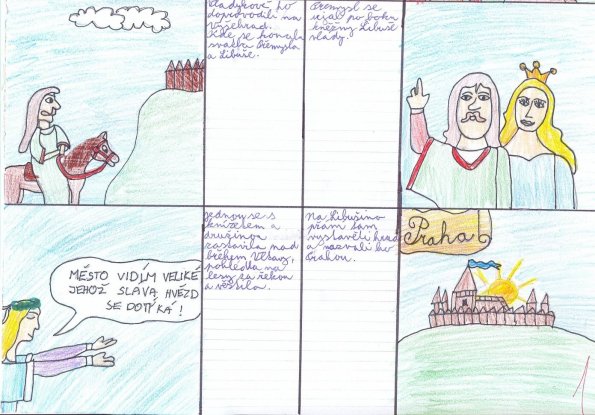 vladykové ho
doprovodili na
Vyšehrad.
Kde se konala
svatba Přemysla
a Libuše.
Přemysl se
ujal po boku
kněžny Libuše
vlády.
Jednou se s
knížetem a
družinou
zastavila nad
břehem Vltavy,
pohlédla na
lesy za řekou
a věštila.
MĚSTO VIDÍM VELIKÉ
JEHOŽ SLÁVA HVĚZD
SE DOTÝKÁ!
Na Libušino
přání tam
vystavěli hrad
a nazvali ho
Prahou.
Praha
1